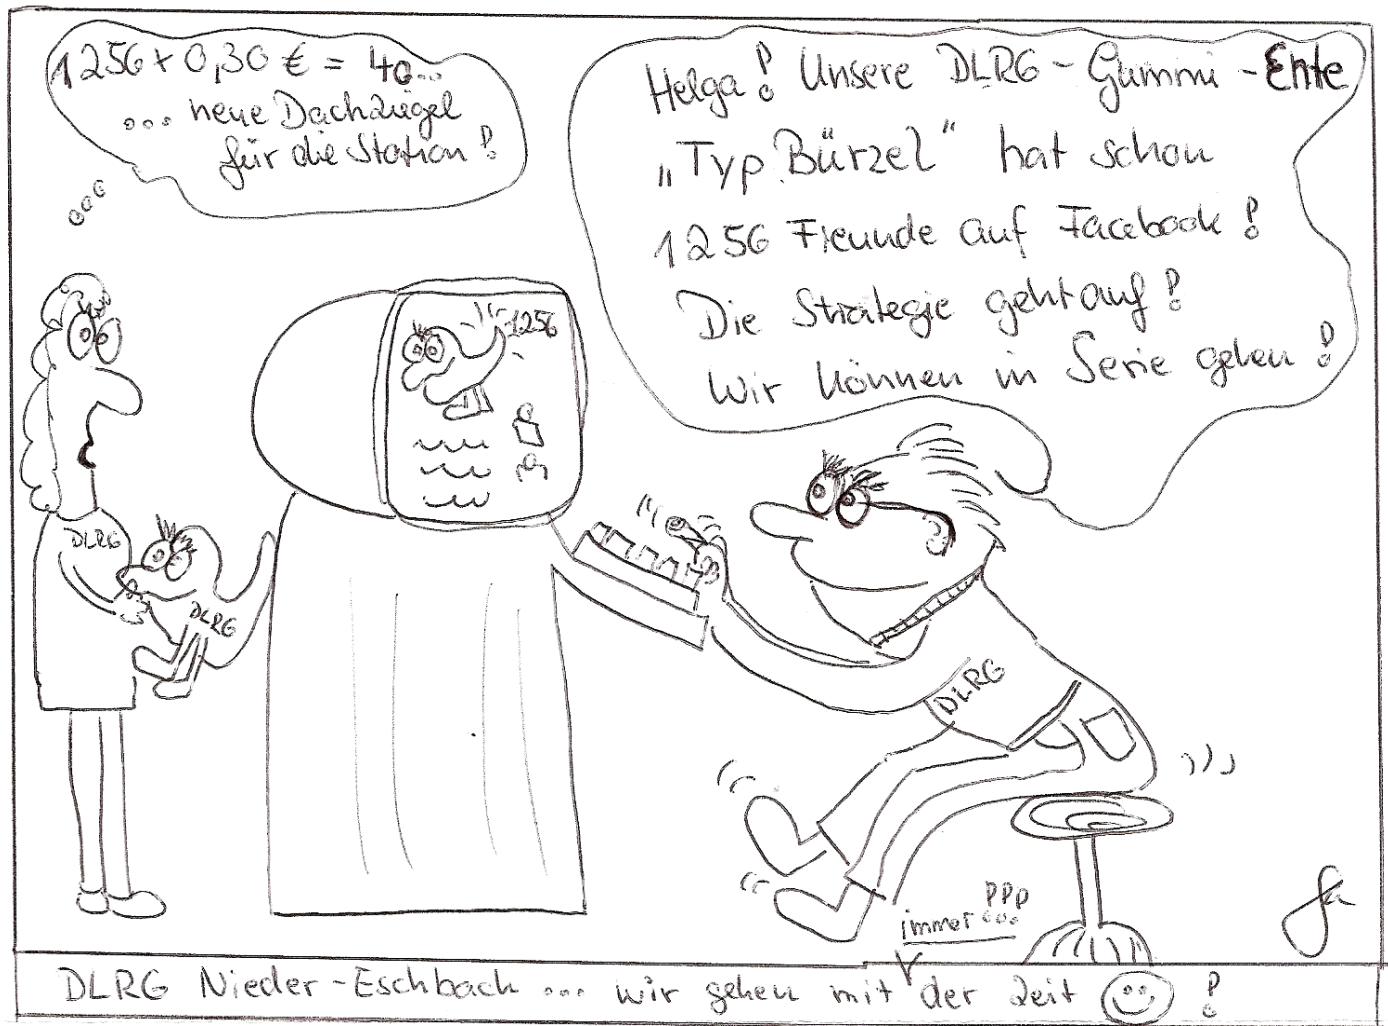 1256 x 0,30 € = 40...
... neue Dachziegel
für die Station!
Helga! Unsere DLRG-Gummi-Ente
„Typ Bürzel“ hat schon
1256 Freunde auf Facebook!
Die Strategie geht auf!
Wir können in Serie gehen!
1256
DLRG
DLRG
DLRG
immer !!!
DLRG Nieder-Eschbach ... wir gehen mit der Zeit ☺ !